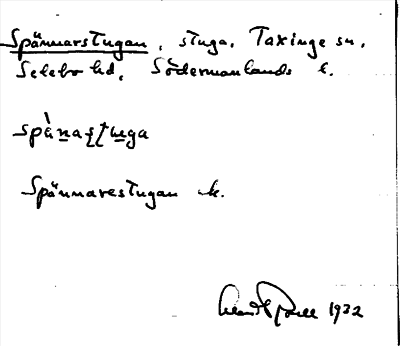 Spännarstugan, stuga, Taxinge sn,
Selebo hd, Södermanlands l.
spä̀naʂtɯga
Spännarestugan k.
1932